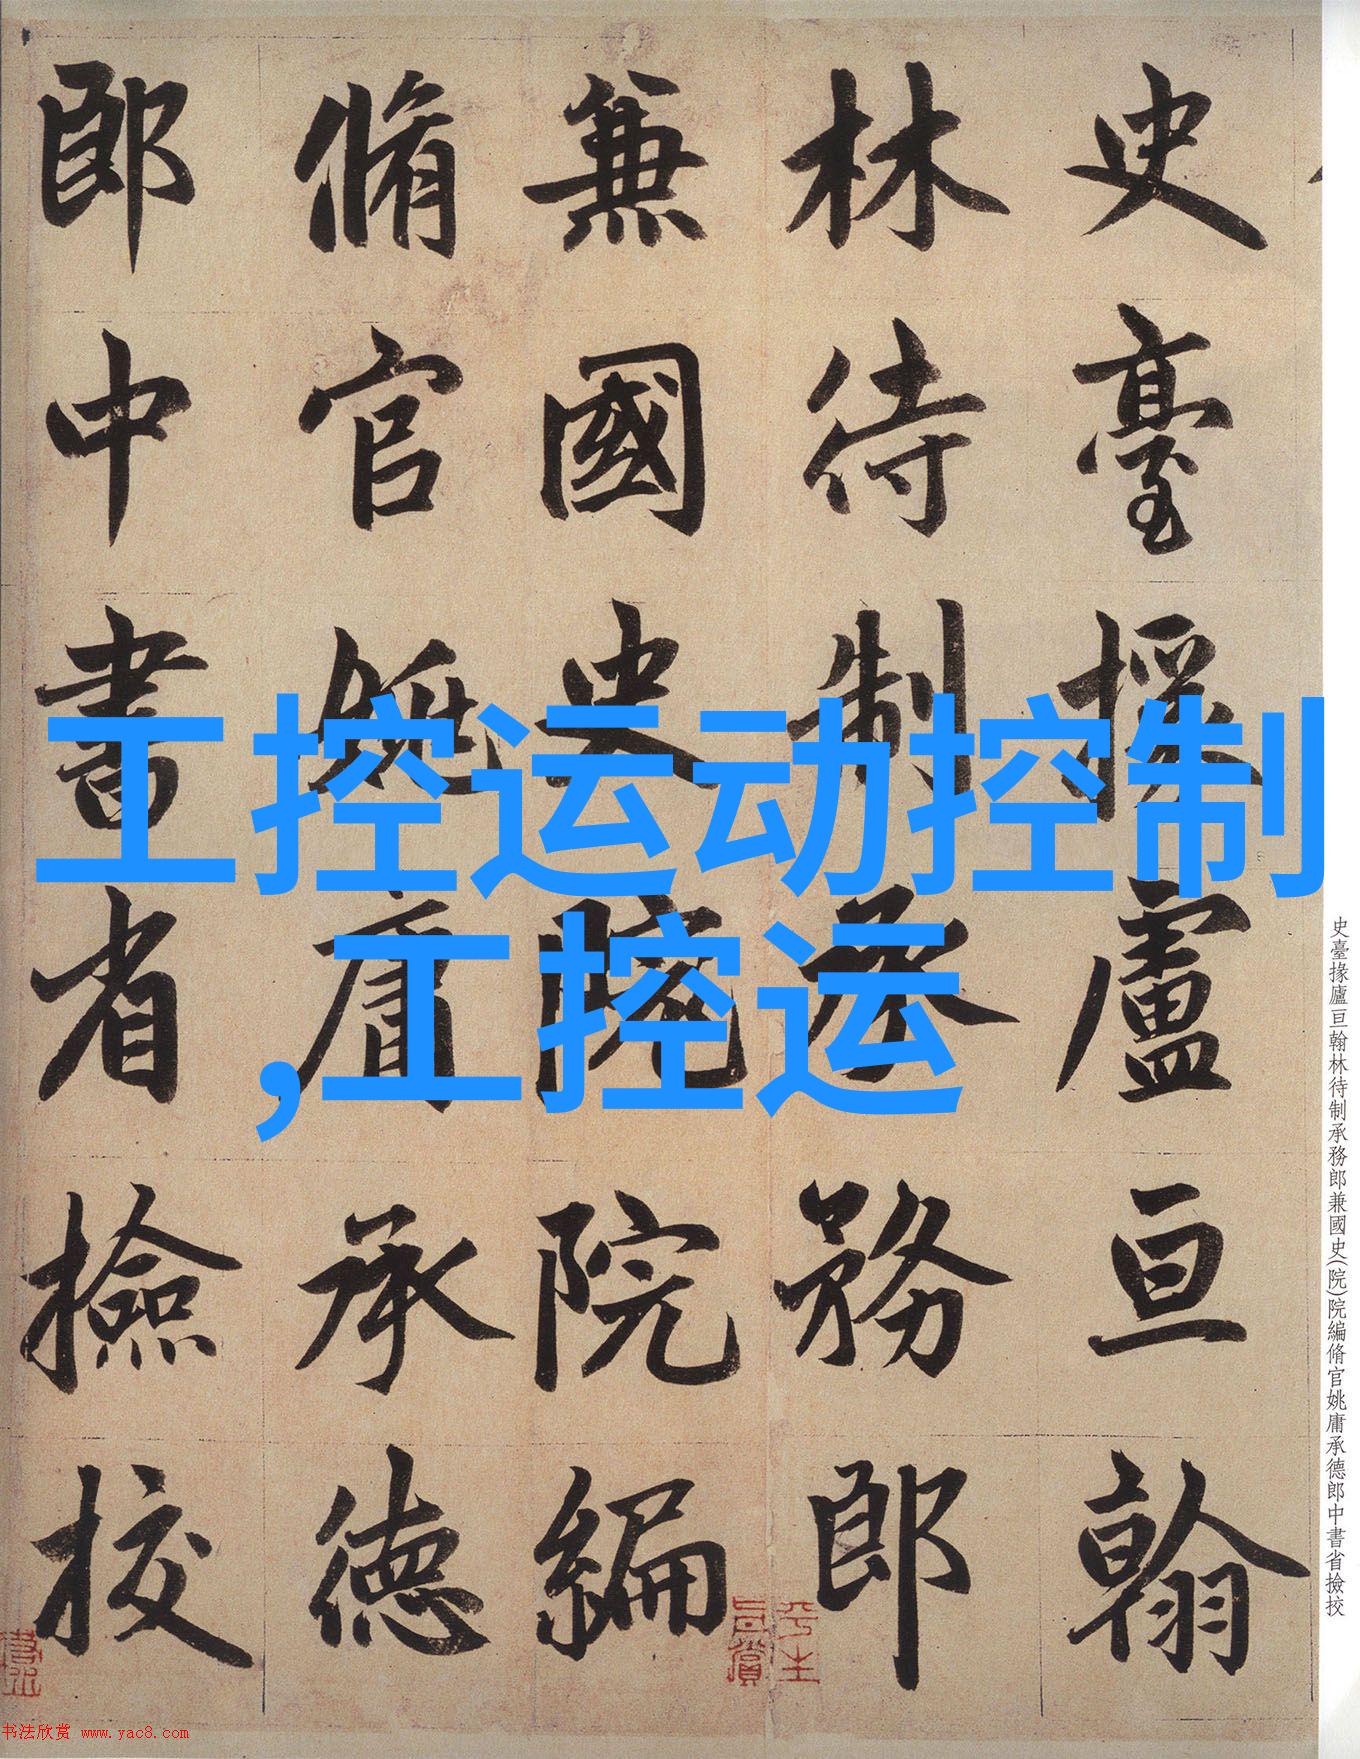 史臺掾廬亘翰
林待制承務郎
兼國史院院編
脩官姚庸承德
郎中書省撿挍
工控运动控制
,工控运
史臺掾廬亘翰林待制承務郎兼國史(院)院編脩官姚庸承德郎中書省撿挍
平生
书法欣赏 www.yac8.com